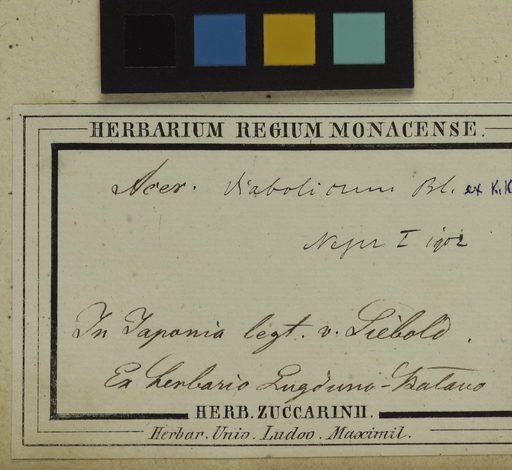 HERBARIUM REGIUM MONACENSE.
Acer. diabolicum Bl. ex K. K
I 1902
In Japonia legt. v. Siebold.
Ex herbario Lugduno-Batavo
HERB. ZUCCARINII.
Herbar. Univ. Ludov. Maximil.